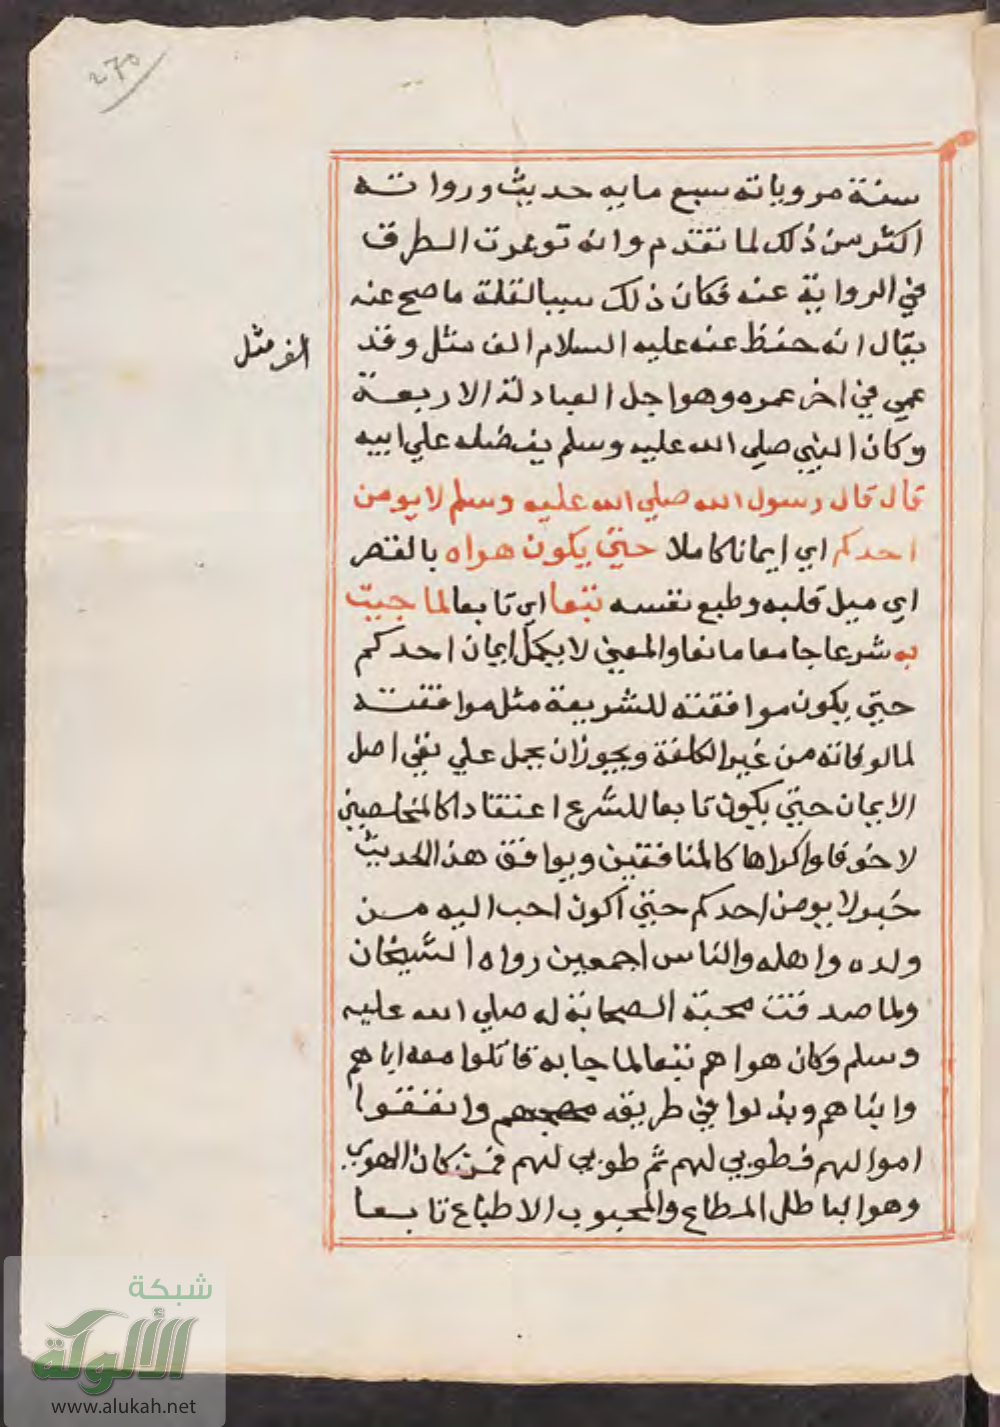 270
سنة مروياته سبع مايه حديث وروا ته
اكثر من ذلك لما تقدم وانه توعرت الطرق
في الرواية عنه فكان ذلك سببا لقلة ما صح عنه
يقال انه حفظ عنه عليه السلام الف مثل وقد
الف مثل
عمي في اخر عمره وهو اجل العبادلة الاربعة
وكان النبي صلي الله عليه وسلم يفضله علي ابيه
قال قال رسول الله صلي الله عليه وسلم لا يومن
احدكم اي ايمانا كاملا حتي يكون هواه بالقصر
اي ميل قلبه وطبع نفسه تبعا اي تابعا لما جيت
به شرعا جامعا مانعا والمعني لا يكمل ايمان احدكم
حتي يكون موافقته للشريعة مثل موافقته
لمالوفاته من غير الكلفة ويجوز ان يحمل علي نفي اصل
الايمان حتي يكون تابعا للشرع اعتقادا كالمخلصين
لا خوفا واكراها كالمنافقين ويوافق هذا الحديث
خبر لا يومن احدكم حتي اكون احب اليه من
ولده واهله والناس اجمعين رواه الشيخان
ولما صدقت محبة الصحابة له صلي الله عليه
وسلم وكان هواهم تبعا لما جا به قاتلوا معه اباهم
وابناهم وبذلوا في طريقه وانفقوا
اموالهم فطوبي لهم ثم طوبي لهم فمن كان الهوي
وهو الباطل المطاع والمحبوب الاطباع تابعا
شبكة
الألوكة
www.alukah.net